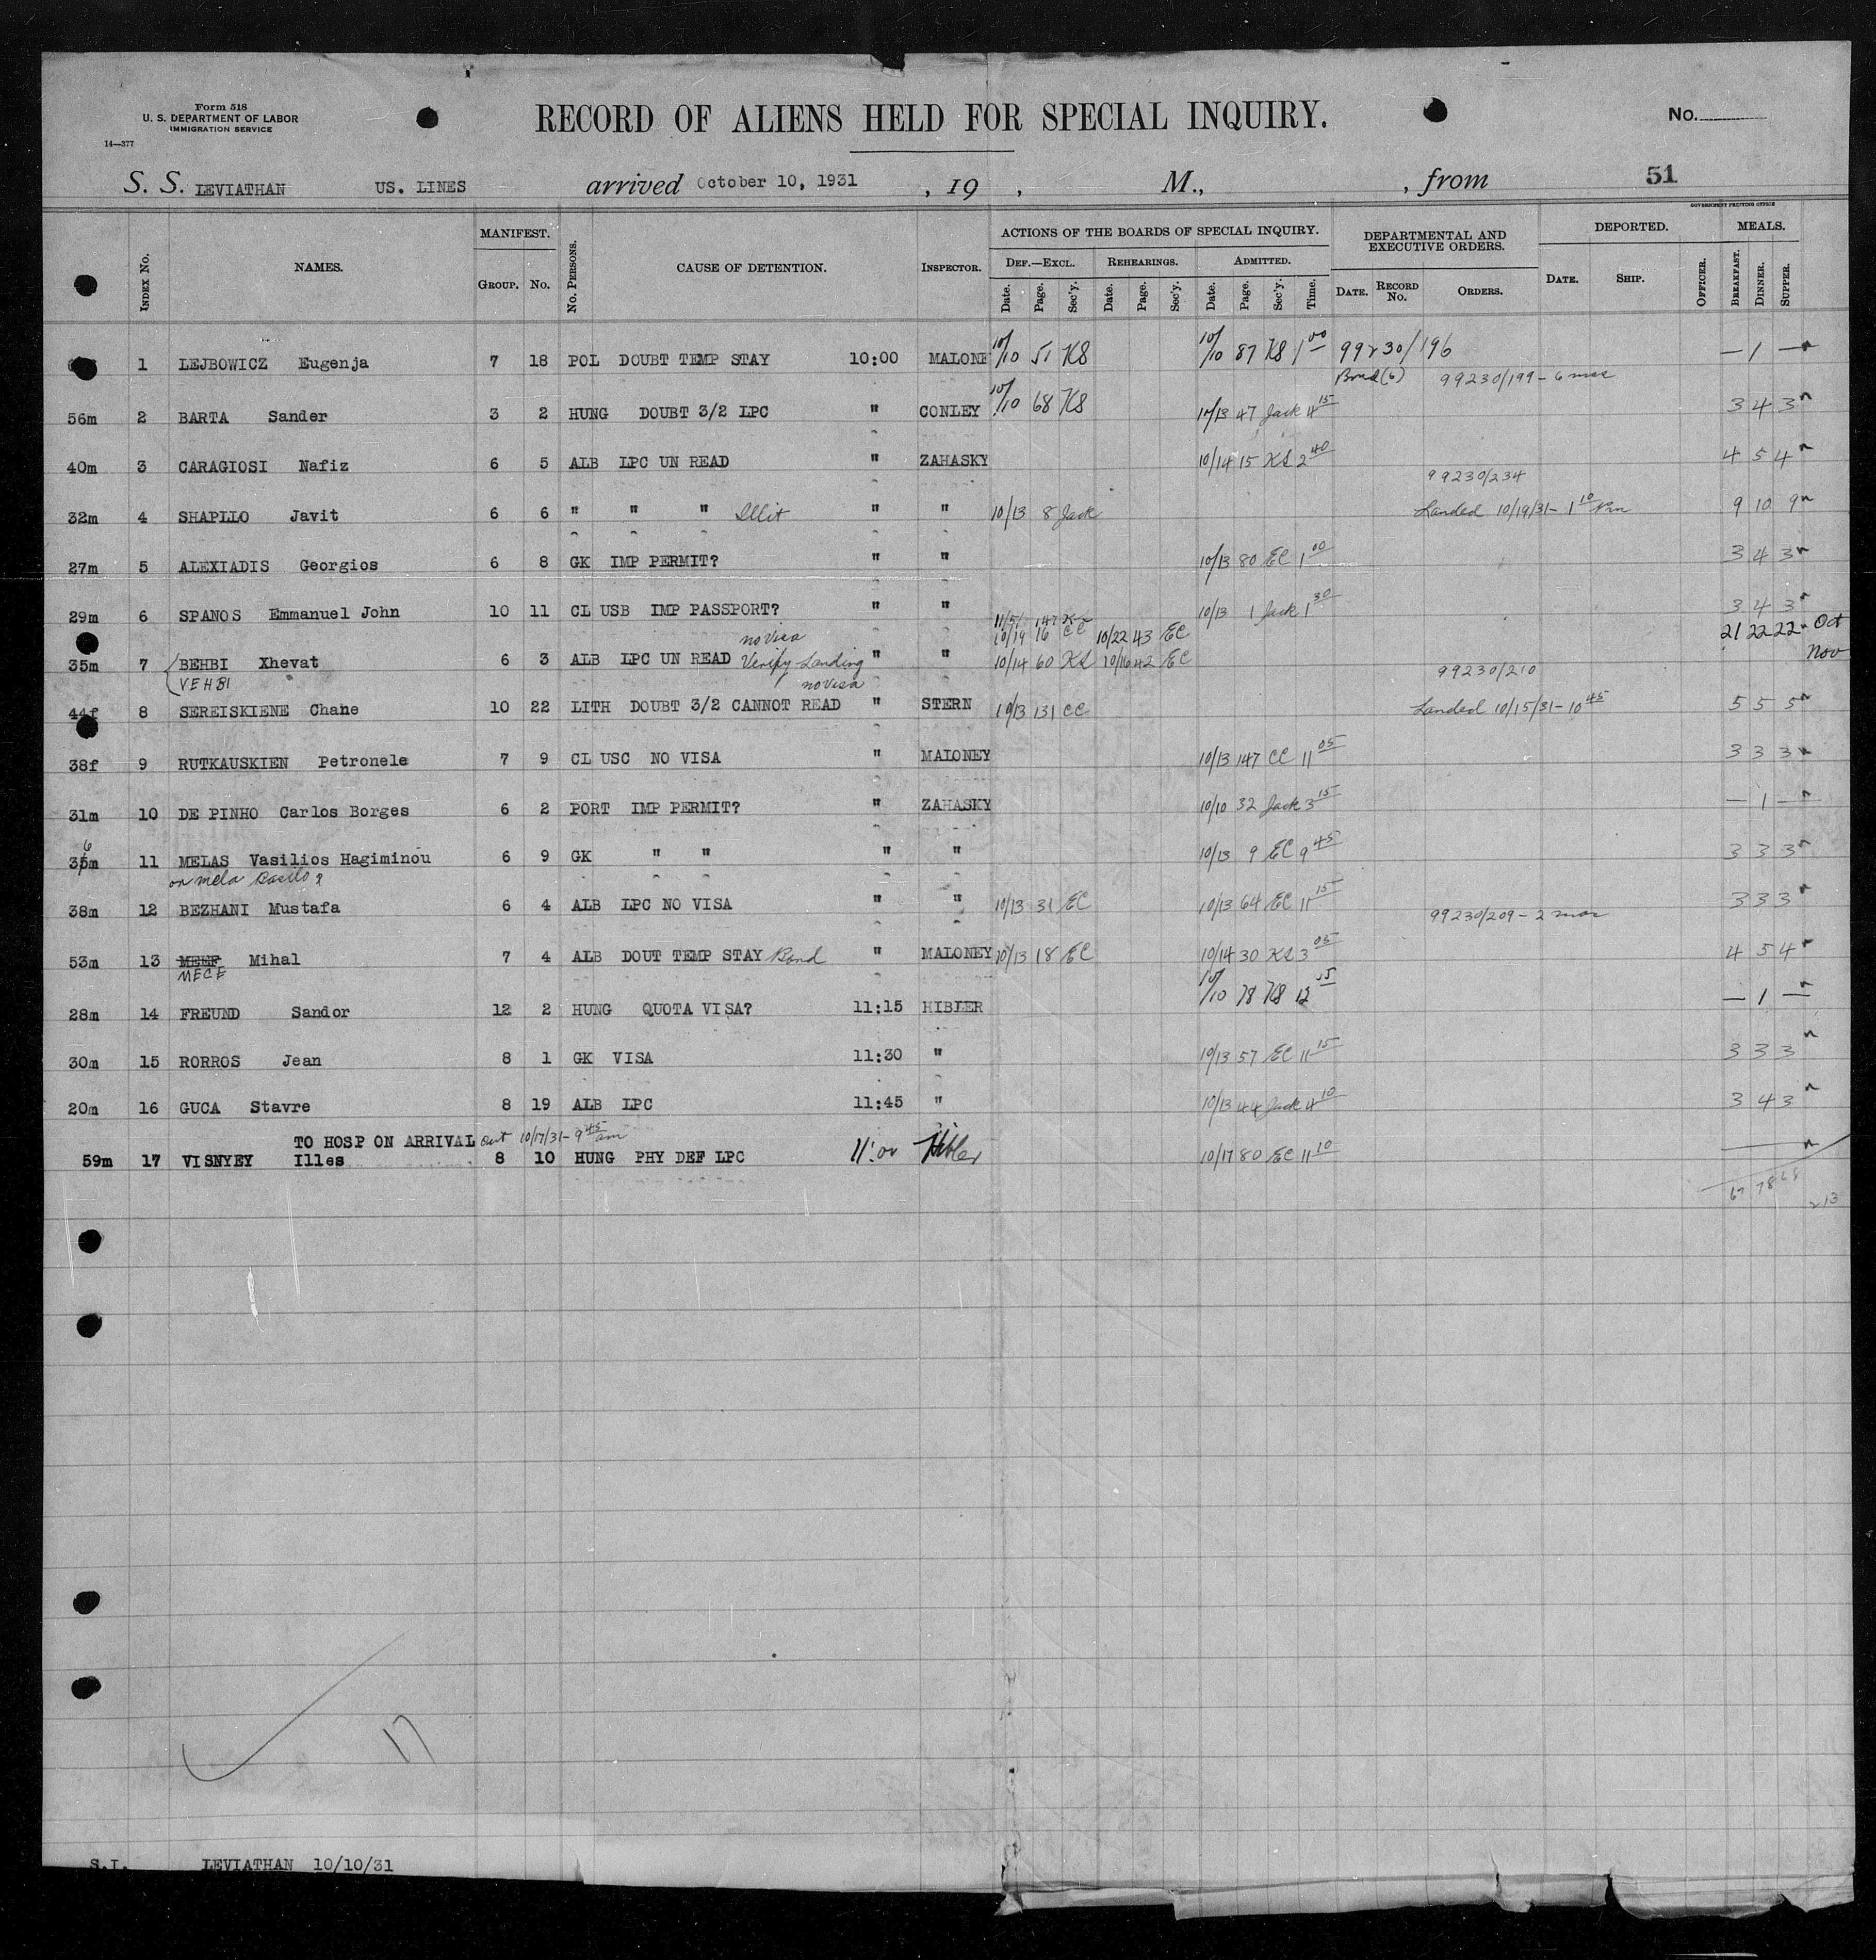 Form 518
U. S. DEPARTMENT OF LABOR
IMMIGRATION SERVICE
14—377
RECORD OF ALIENS HELD FOR SPECIAL INQUIRY.
No.
S. S. LEVIATHAN US. LINES arrived October 10, 1931 , 19 , M., , from 51
GOVERNMENT PRINTING OFFICE
INDEX No. NAMES. MANIFEST. No. PERSONS. CAUSE OF DETENTION. INSPECTOR. ACTIONS OF THE BOARDS OF SPECIAL INQUIRY. DEPARTMENTAL AND EXECUTIVE ORDERS. DEPORTED. MEALS.
GROUP. No. DEF.—EXCL. REHEARINGS. ADMITTED. DATE. RECORD No. ORDERS. DATE. SHIP. OFFICER. BREAKFAST. DINNER. SUPPER.
Date. Page. Sec'y. Date. Page. Sec'y. Date. Page. Sec'y. Time.
1 LEJBOWICZ Eugenja 7 18 POL DOUBT TEMP STAY 10:00 MALONE 10/10 51 KS 10/10 87 KS 1 00 99230/196 — 1 —
Bond (6) 99230/199 - 6 mos
56m 2 BARTA Sander 3 2 HUNG DOUBT 3/2 LPC " CONLEY 10/10 68 KS 10/13 47 Jack 4 15 3 4 3
40m 3 CARAGIOSI Nafiz 6 5 ALB LPC UN READ " ZAHASKY 10/14 15 KS 2 40 4 5 4
99230/234
32m 4 SHAPLLO Javit 6 6 " " " Illit " " 10/13 8 Jack Landed 10/19/31 - 1 10 Pm 9 10 9
27m 5 ALEXIADIS Georgios 6 8 GK IMP PERMIT? " " 10/13 80 EC 1 00 3 4 3
29m 6 SPANOS Emmanuel John 10 11 CL USB IMP PASSPORT? " " 10/13 1 Jack 1 30 3 4 3
11/5 147
no visa 10/19 16 CC 10/22 43 EC 21 22 22 Oct
35m 7 BEHBI Xhevat 6 3 ALB LPC UN READ Verify Landing " " 10/14 60 KS 10/16 42 EC Nov
VEHBI no visa 99230/210
44f 8 SEREISKIENE Chane 10 22 LITH DOUBT 3/2 CANNOT READ " STERN 10/13 131 CC Landed 10/15/31 - 10 45 5 5 5
38f 9 RUTKAUSKIEN Petronele 7 9 CL USC NO VISA " MALONEY 10/13 147 CC 11 05 3 3 3
31m 10 DE PINHO Carlos Borges 6 2 PORT IMP PERMIT? " ZAHASKY 10/10 32 Jack 3 15 — 1 —
36m 11 MELAS Vasilios Hagiminou 6 9 GK " " " " 10/13 9 EC 9 45 3 3 3
or mela
38m 12 BEZHANI Mustafa 6 4 ALB LPC NO VISA " " 10/13 31 EC 10/13 64 EC 11 15 3 3 3
99230/209 - 2 mos
53m 13 MEEF Mihal 7 4 ALB DOUT TEMP STAY Bond " MALONEY 10/13 18 EC 10/14 30 KS 3 05 4 5 4
MECE
28m 14 FREUND Sandor 12 2 HUNG QUOTA VISA? 11:15 HIBLER 10/10 78 KS 12 15 — 1 —
30m 15 RORROS Jean 8 1 GK VISA 11:30 " 10/13 57 EC 11 15 3 3 3
20m 16 GUCA Stavre 8 19 ALB LPC 11:45 " 10/13 44 Jack 4 10 3 4 3
TO HOSP ON ARRIVAL out 10/17/31 - 9 45 am
59m 17 VISNYEY Illes 8 10 HUNG PHY DEF LPC 11:00 Hibler 10/17 80 EC 11 10
67 78 68
213
17
S.I. LEVIATHAN 10/10/31